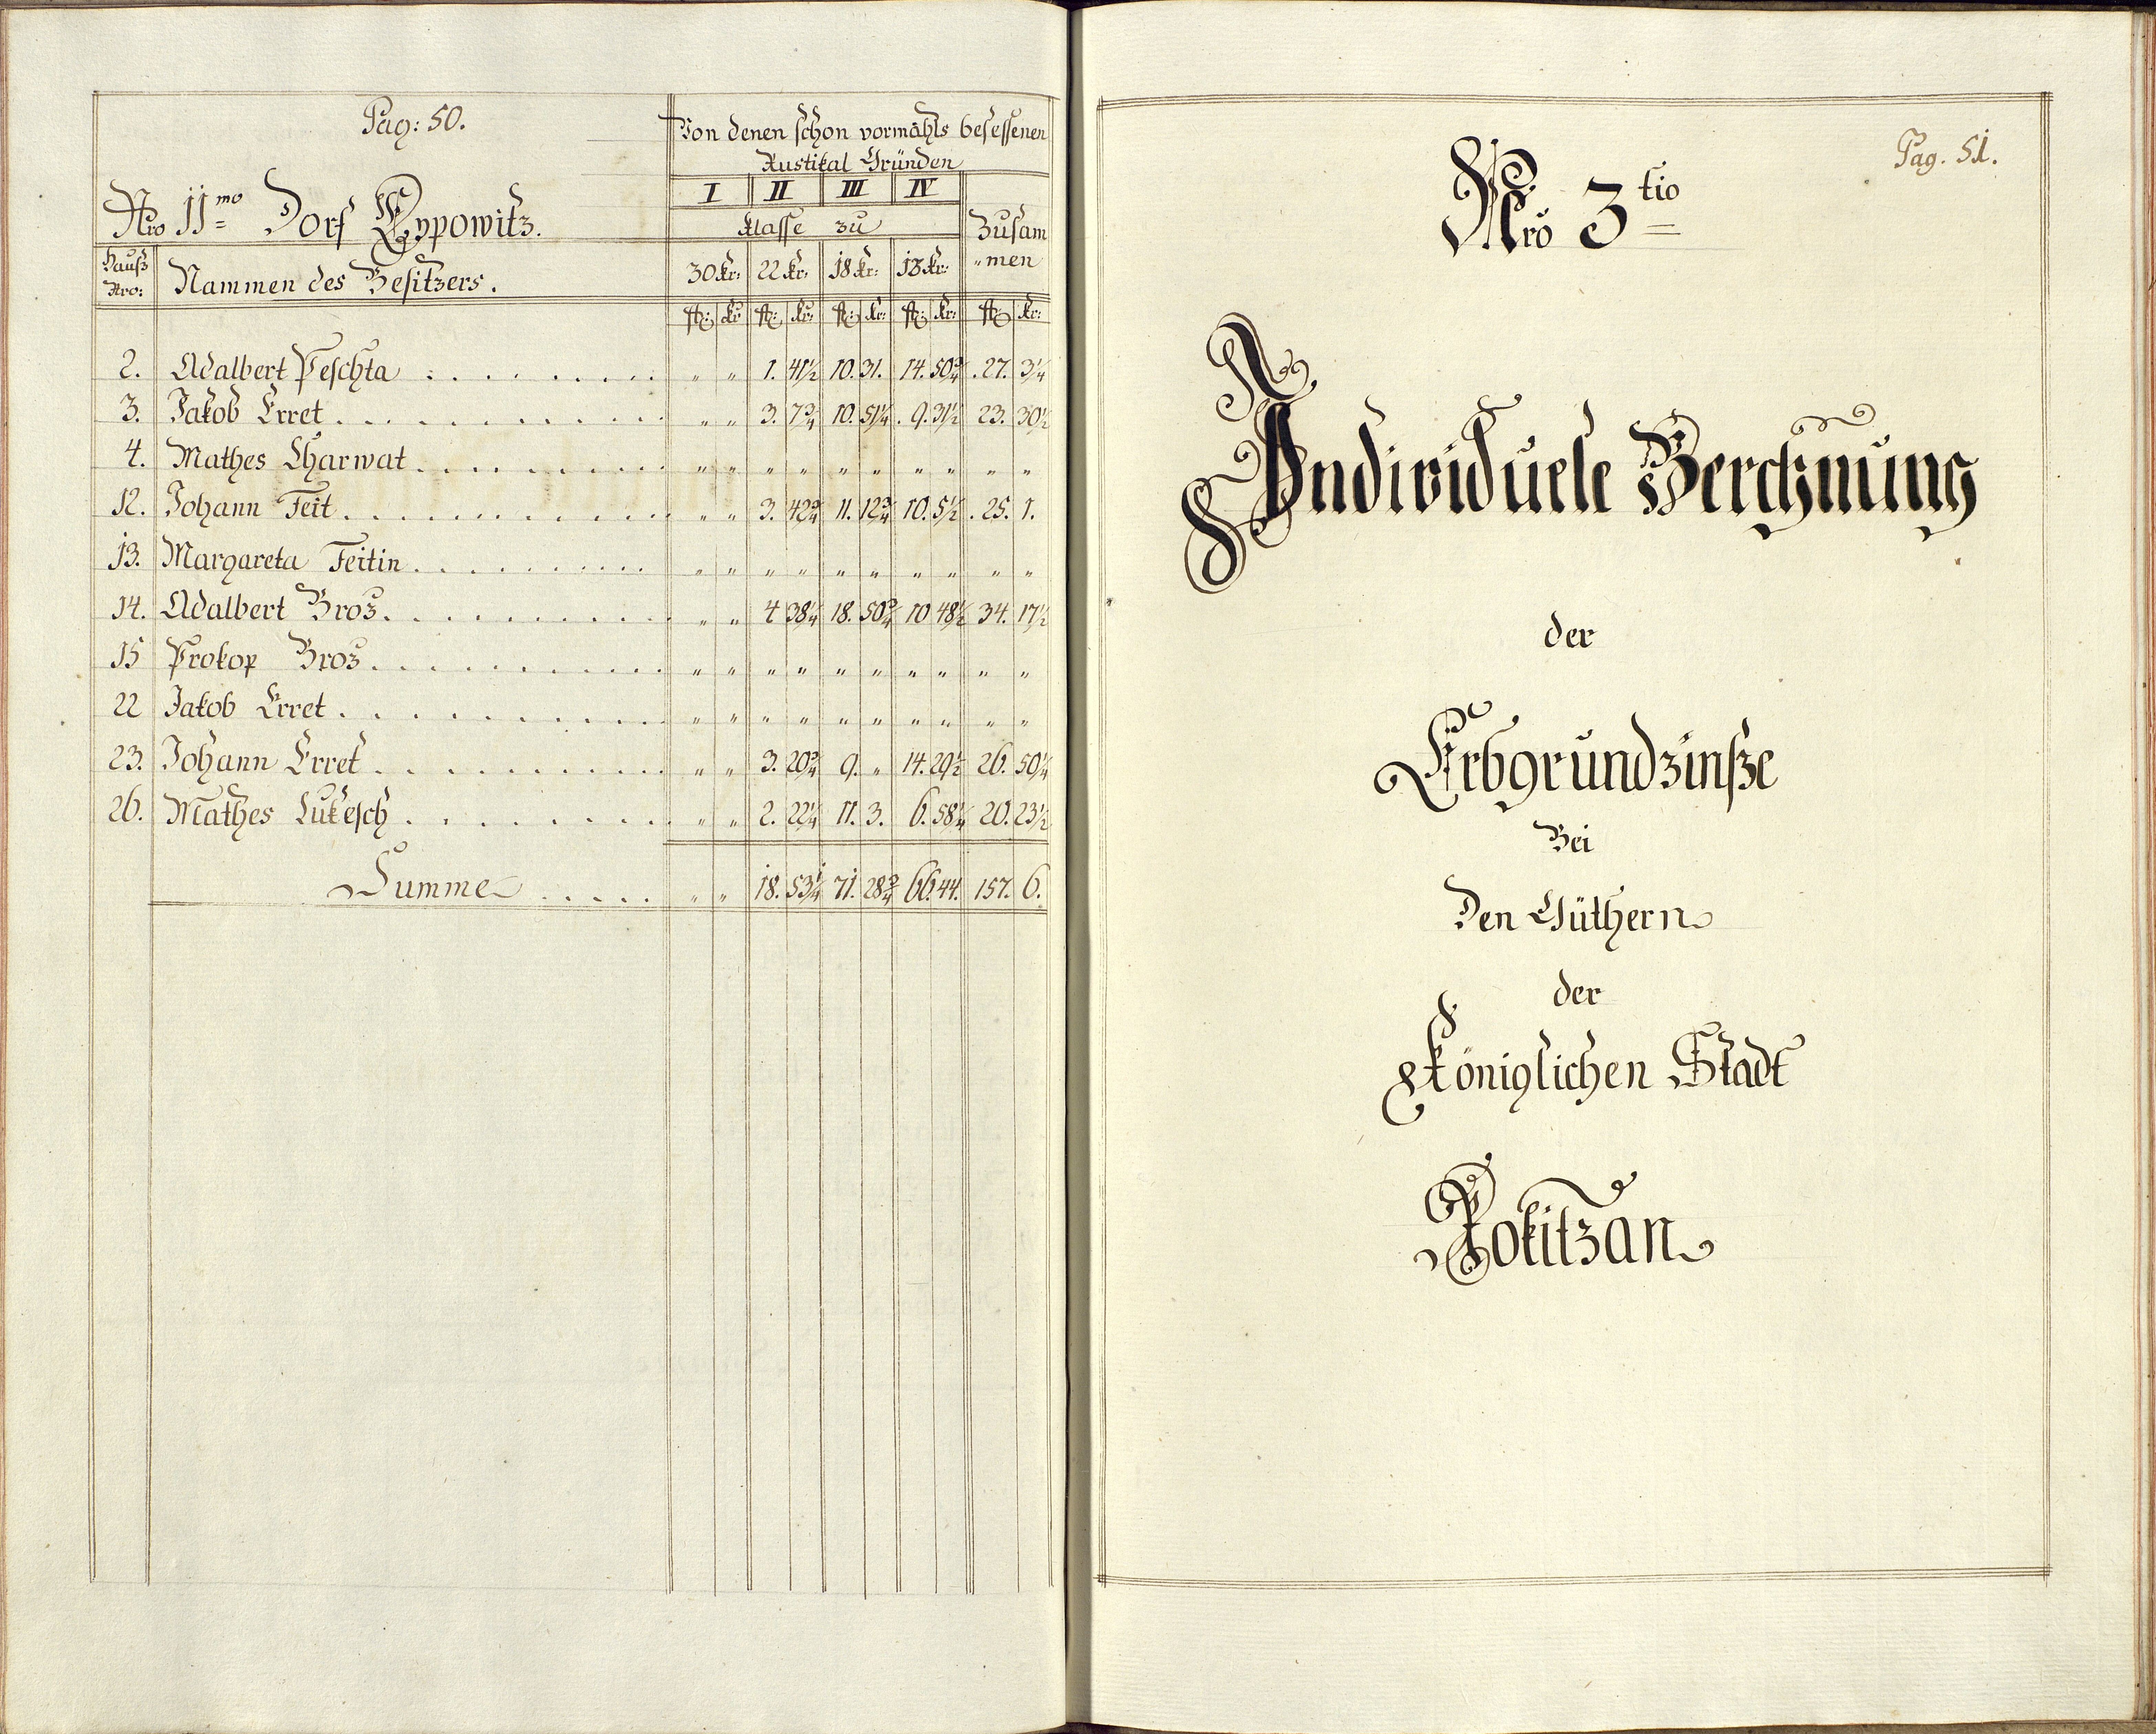 Pag: 50.
Von denen schon vormahls besessenen
Rustikal Gründen
Nro 11mo Dorf Eypowitz.
I II III IV
Klasse zu
Zusam
"men
Hauß
Nro:
Nammen des Besitzers.
30 Kr: 22 Kr: 18 Kr: 13 Kr:
fl: Kr fl: Kr: fl: Kr: fl: Kr: fl: Kr:
2. Adalbert Peschta . . . . . . . . . " " 1. 41½ 10. 31. 14. 50¾ 27. 3¼
3. Jakob Erret . . . . . . . . . " " 3. 7¾ 10. 51¼ 9. 31½ 23. 30½
4. Mathes Charwat . . . . . . . . . " " " " " " " " " "
12. Johann Feit . . . . . . . . . " " 3. 42¾ 11. 12¾ 10. 5½ 25. 1.
13. Margareta Feitin . . . . . . . . . " " " " " " " " " "
14. Adalbert Broz . . . . . . . . . " " 4 38¼ 18. 50¾ 10 48½ 34. 17½
15 Prokop Broz . . . . . . . . . " " " " " " " " " "
22 Jakob Erret . . . . . . . . . " " " " " " " " " "
23. Johann Erret . . . . . . . . . " " 3. 20¾ 9. " 14. 29½ 26. 50¼
26. Mathes Lukesch . . . . . . . . . " " 2. 22¼ 11. 3. 6. 58¼ 20. 23½
Summe . . . . . " " 18. 53¼ 71. 28¾ 66. 44. 157. 6.
Pag. 51.
Nro 3tio
Individuele Berchnung
der
Erbgrundzinße
Bei
Den Güthern
der
Königlichen Stadt
Rokitzan